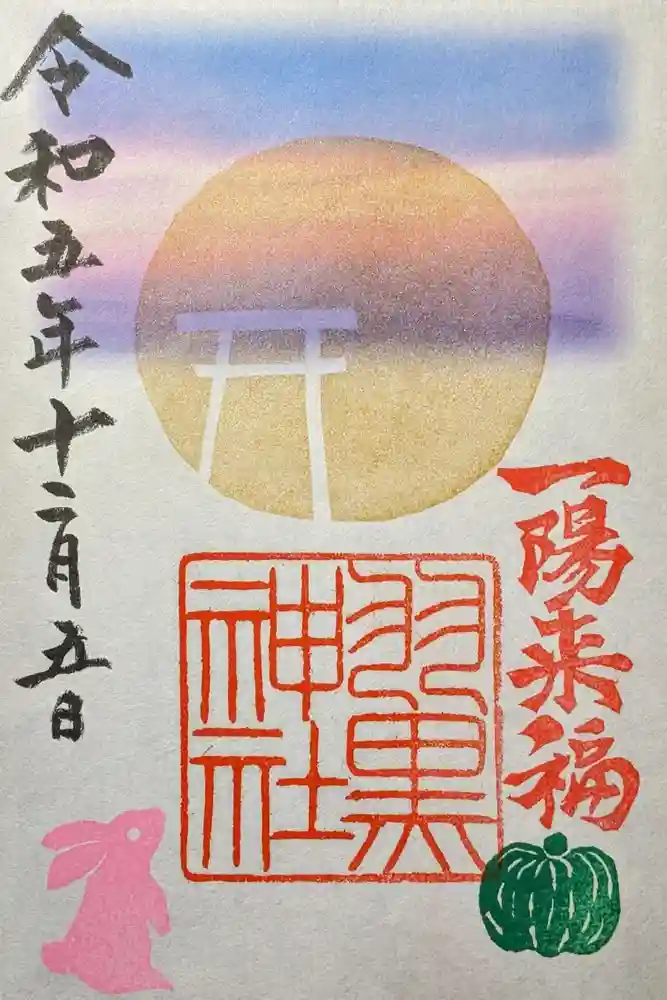 一陽来福
羽黒
神社
令和五年十二月五日